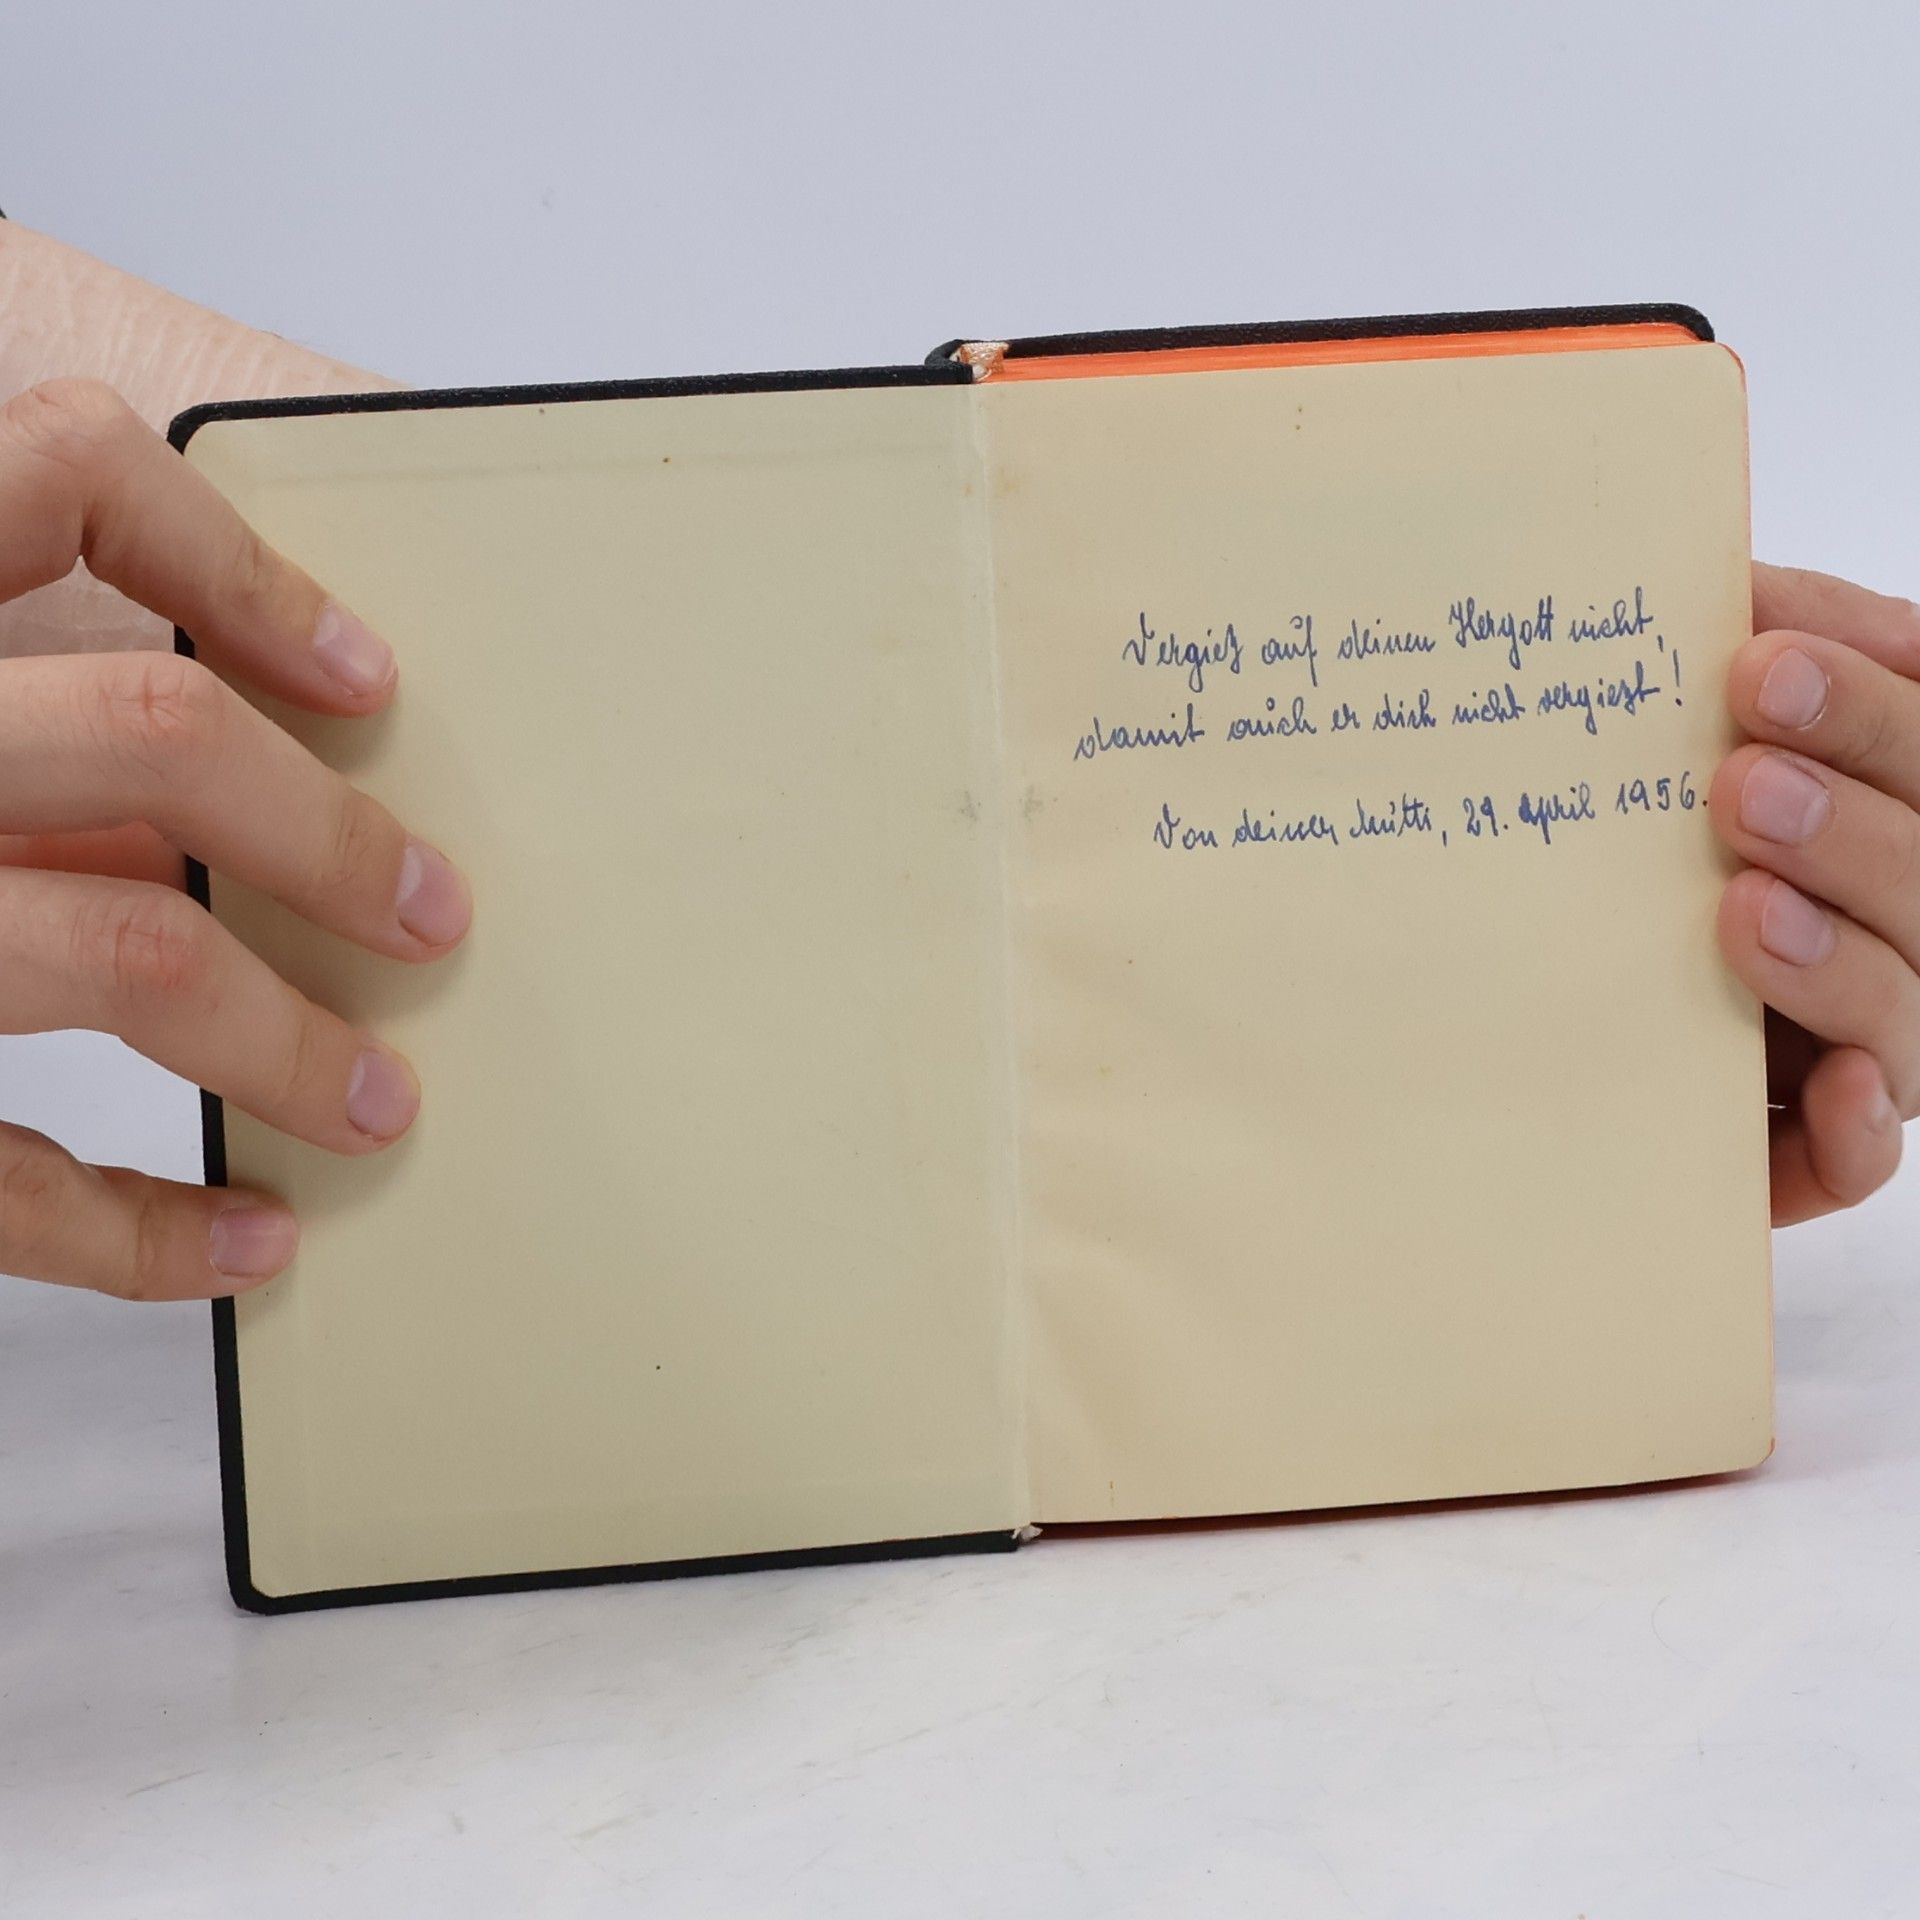 Vergieß auf deinen Hergott nicht,
damit auch er dich nicht vergießt!
Von deiner Mutti, 29. April 1956.